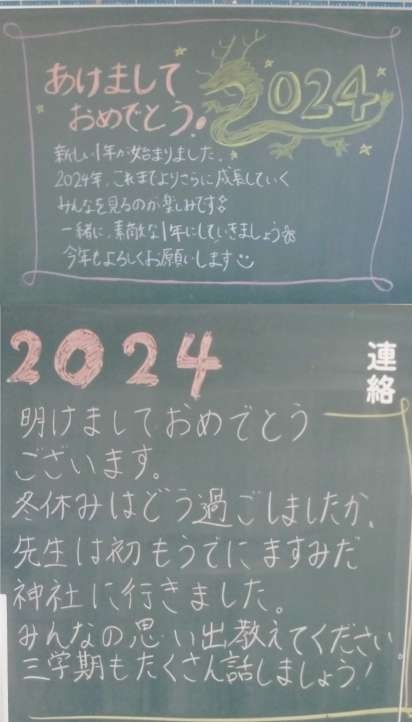 あけまして
おめでとう!
2024
新しい1年が始まりました。
2024年、これまでよりさらに成長していく
みんなを見るのが楽しみです
一緒に、素敵な1年にしていきましょう
今年もよろしくお願いします
2024
連絡
明けましておめでとう
ございます。
冬休みはどう過ごしましたか、
先生は初もうでにますみだ
神社に行きました。
みんなの思い出教えてください。
三学期もたくさん話しましょう!